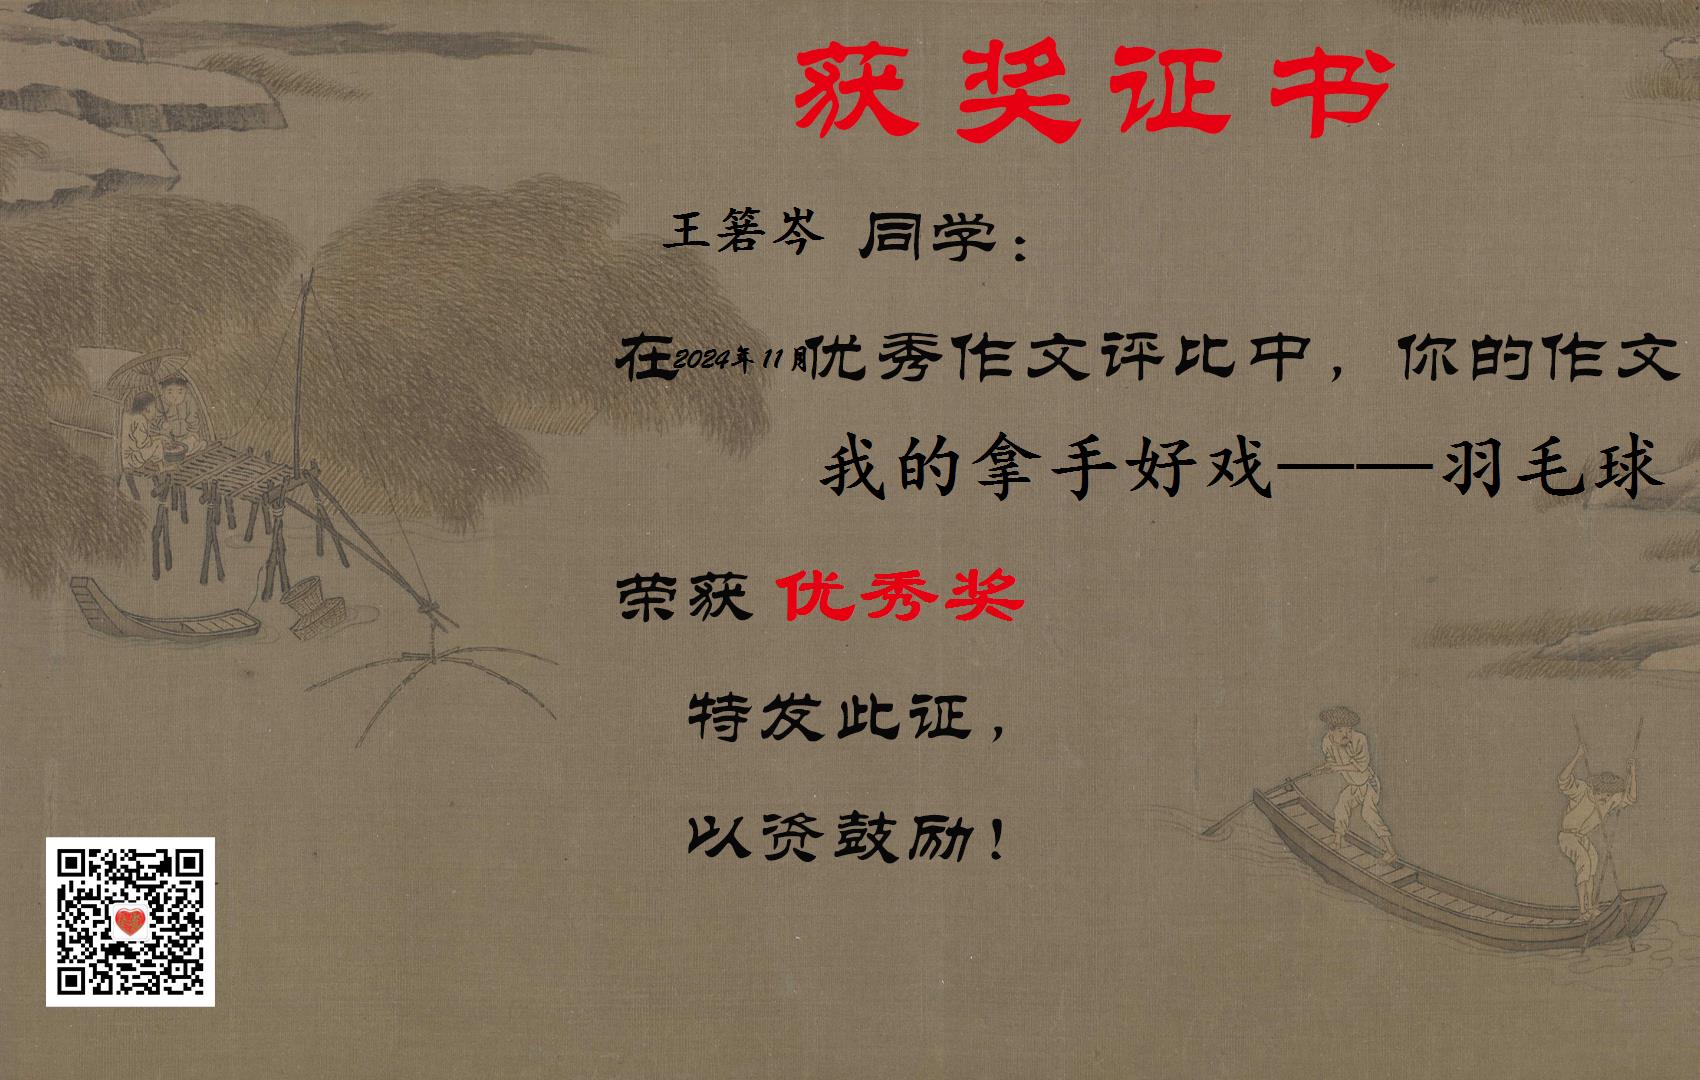 获奖证书
王箬岑 同学：
在2024年11月优秀作文评比中，你的作文
我的拿手好戏——羽毛球
荣获 优秀奖
特发此证，
以资鼓励！